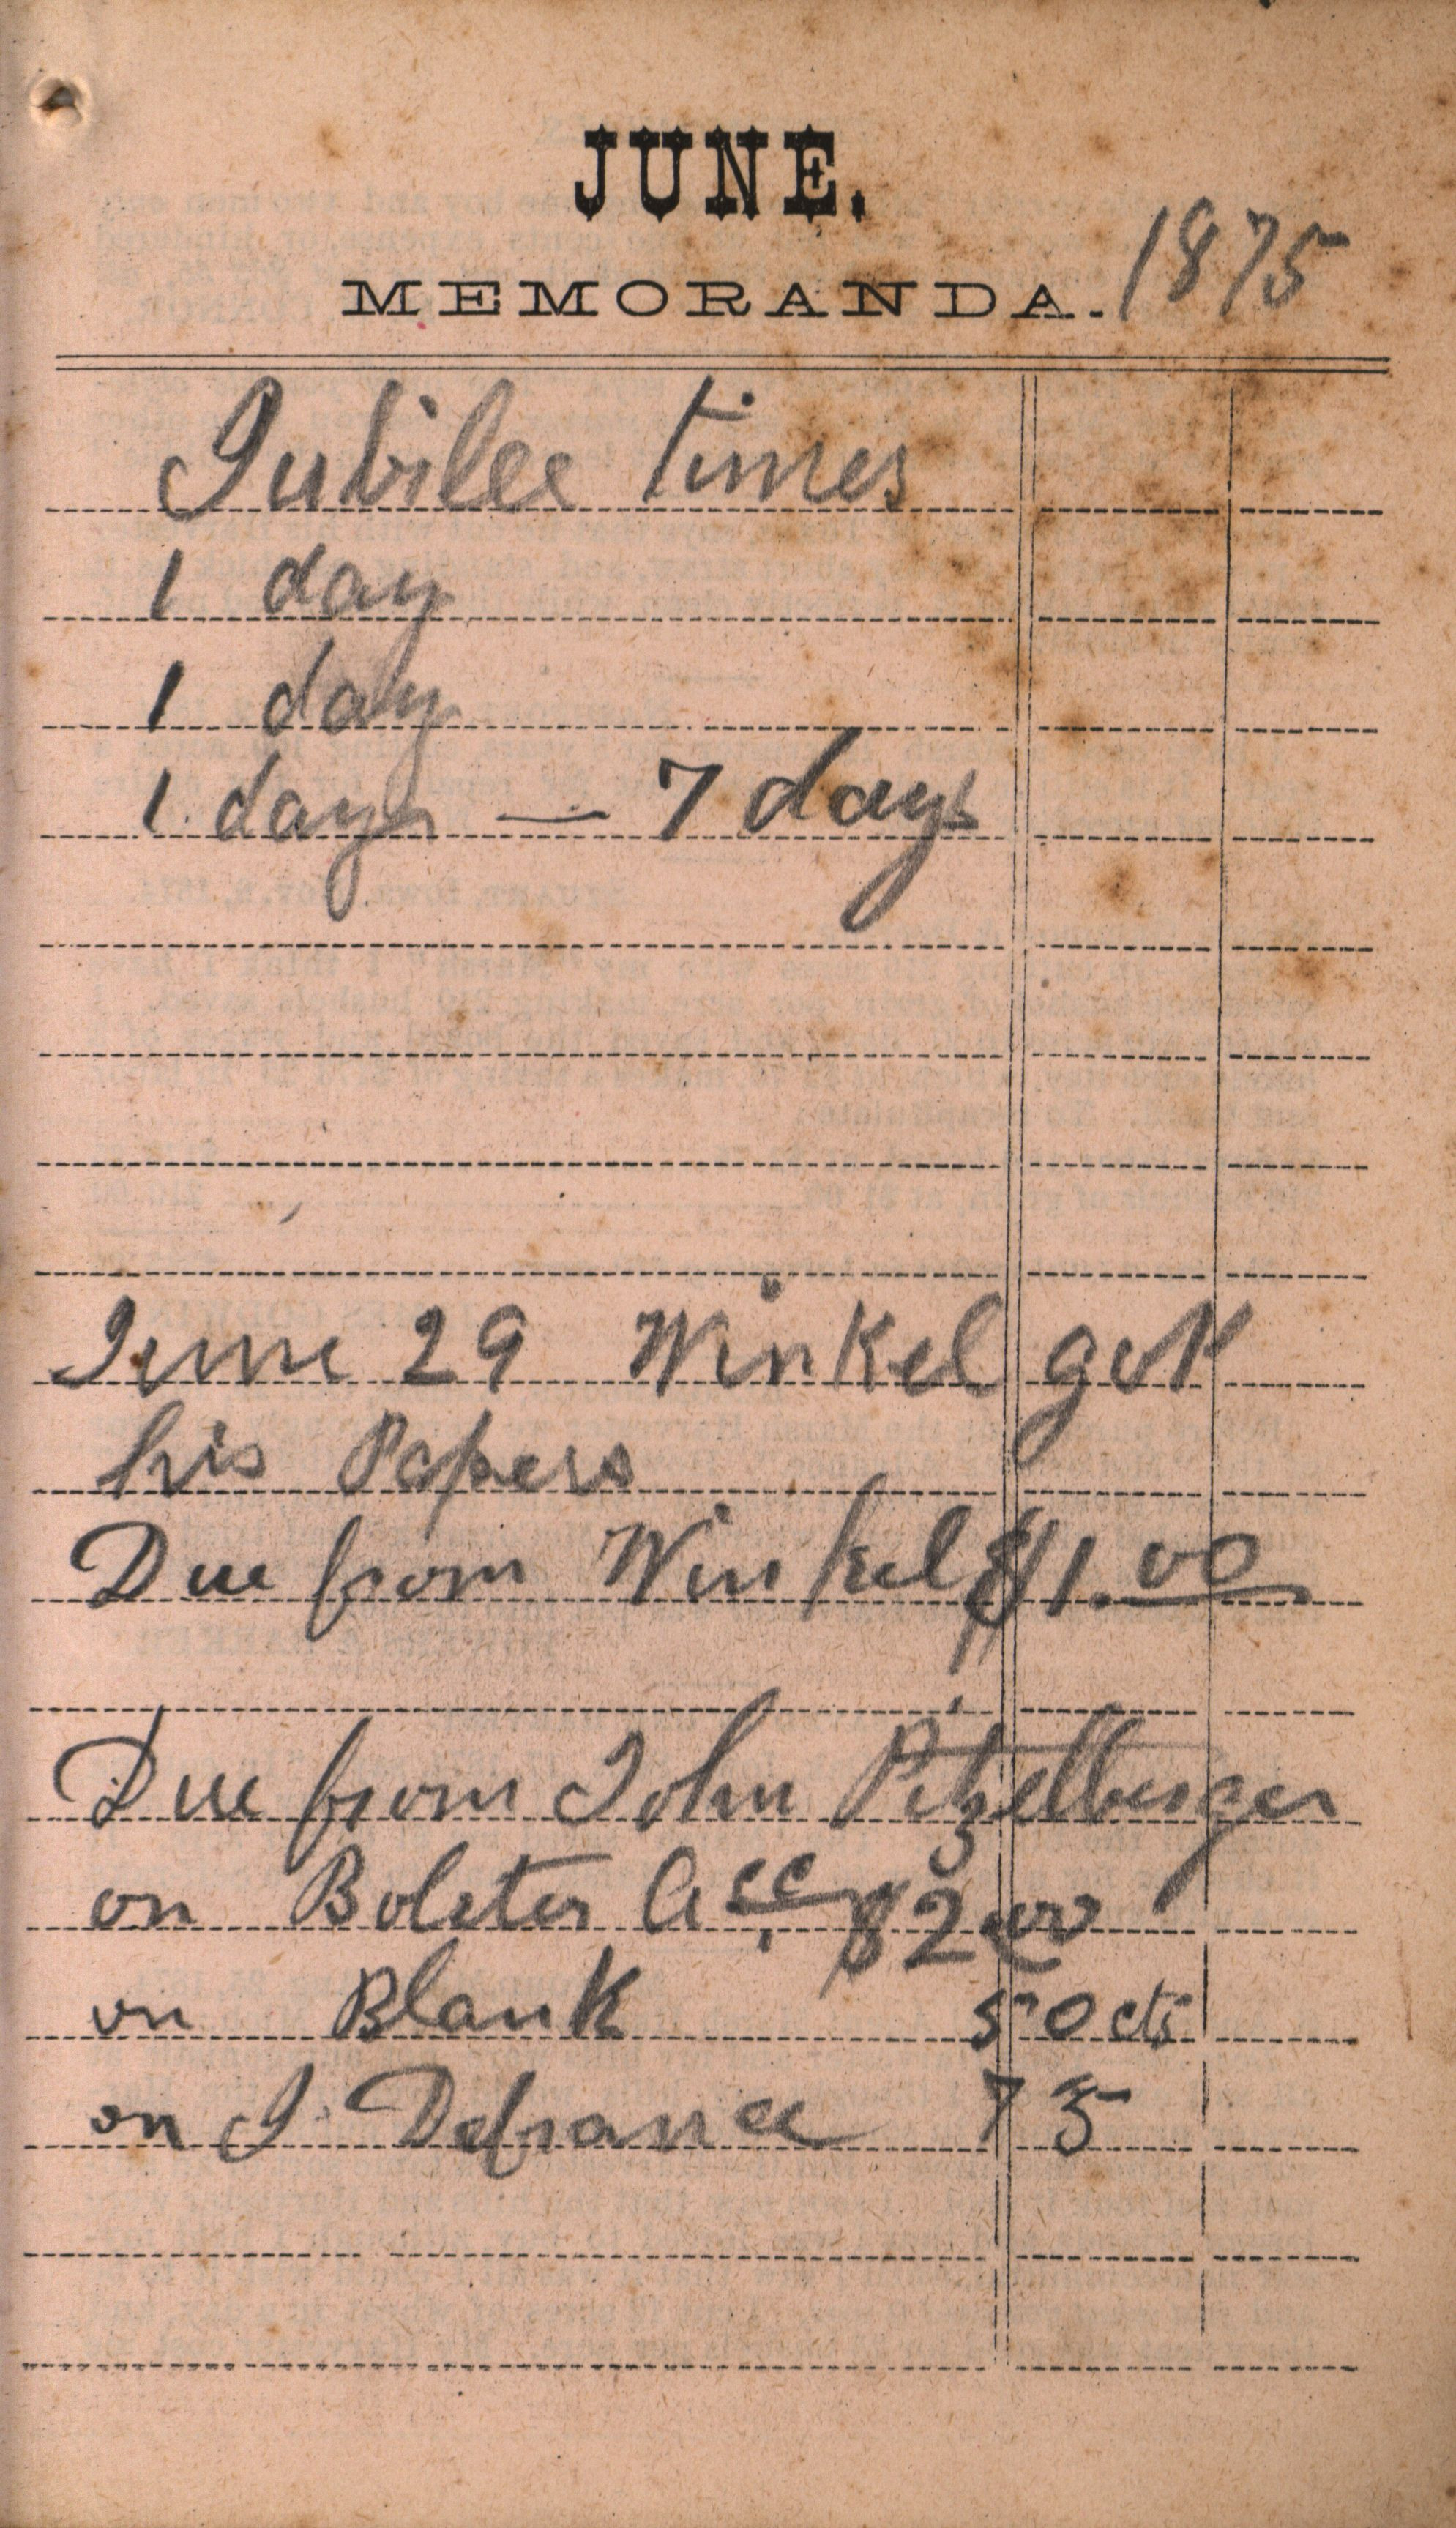 JUNE.
1875
MEMORANDA.
Jubilee times
1 day
1 day
1 days — 7 days
June 29 Winkel got
his Papers
Due from Winkel $1.00
Due from John Pitzelberger
on Bolster Acc $2 00
on Blank 50 cts
on J. Defrance 75